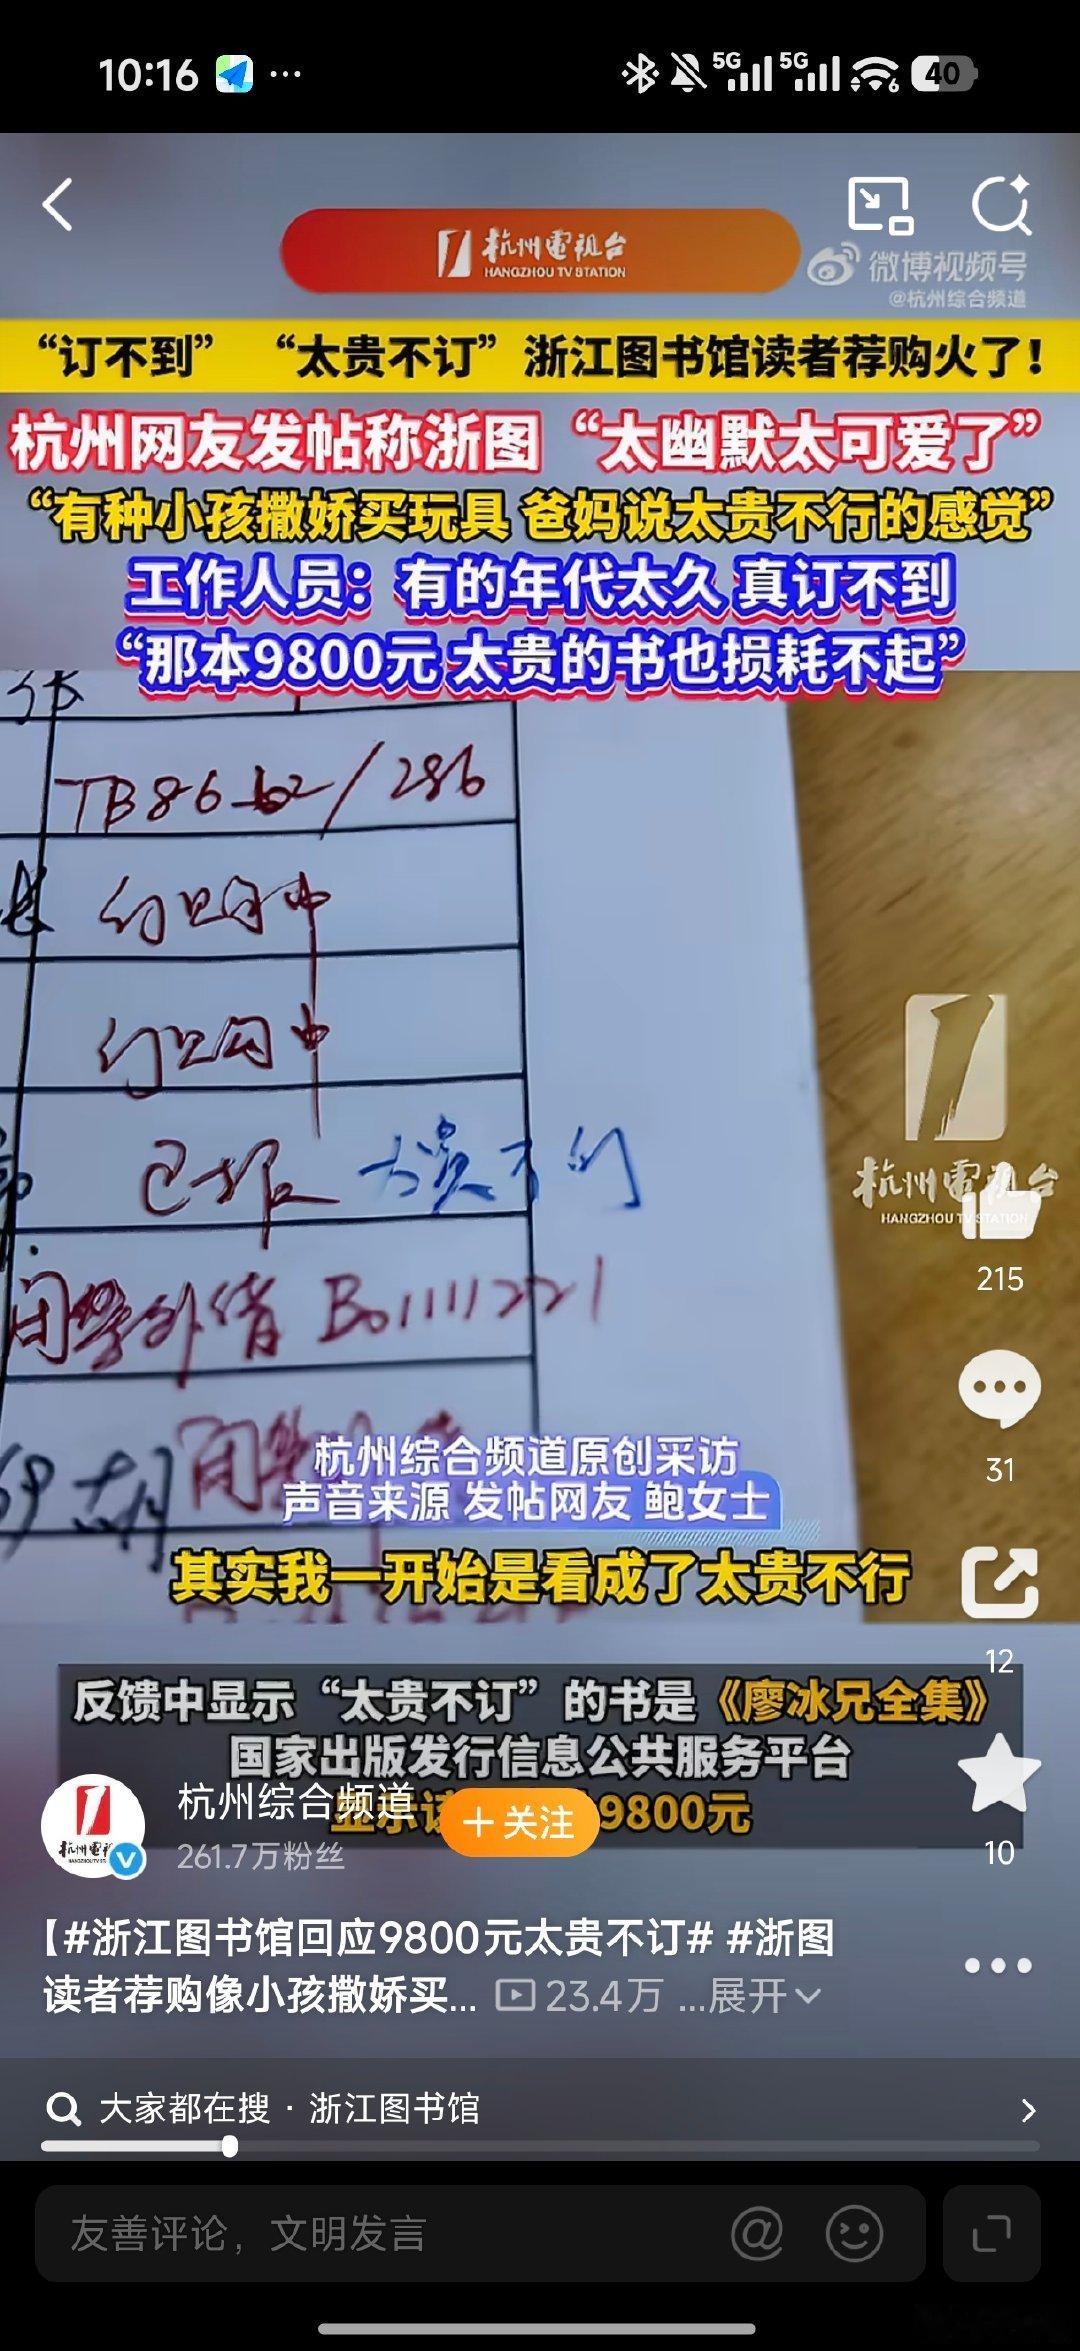 10:16
5G
5G
6
40
杭州電视台
HANGZHOU TV STATION
微博视频号
@杭州综合频道
“订不到” “太贵不订”浙江图书馆读者荐购火了！
杭州网友发帖称浙图“太幽默太可爱了”
“有种小孩撒娇买玩具 爸妈说太贵不行的感觉”
工作人员：有的年代太久 真订不到
“那本9800元 太贵的书也损耗不起”
订购中
订购中
已报 太贵不订
闭架外借 B01111221
胡
杭州電视台
HANGZHOU TV STATION
215
31
杭州综合频道原创采访
声音来源 发帖网友 鲍女士
其实我一开始是看成了太贵不行
12
反馈中显示“太贵不订”的书是《廖冰兄全集》
国家出版发行信息公共服务平台
显示该 9800元
杭州综合频道
+关注
261.7万粉丝
10
【#浙江图书馆回应9800元太贵不订# #浙图
读者荐购像小孩撒娇买... 23.4万 ...展开
大家都在搜 · 浙江图书馆
友善评论，文明发言